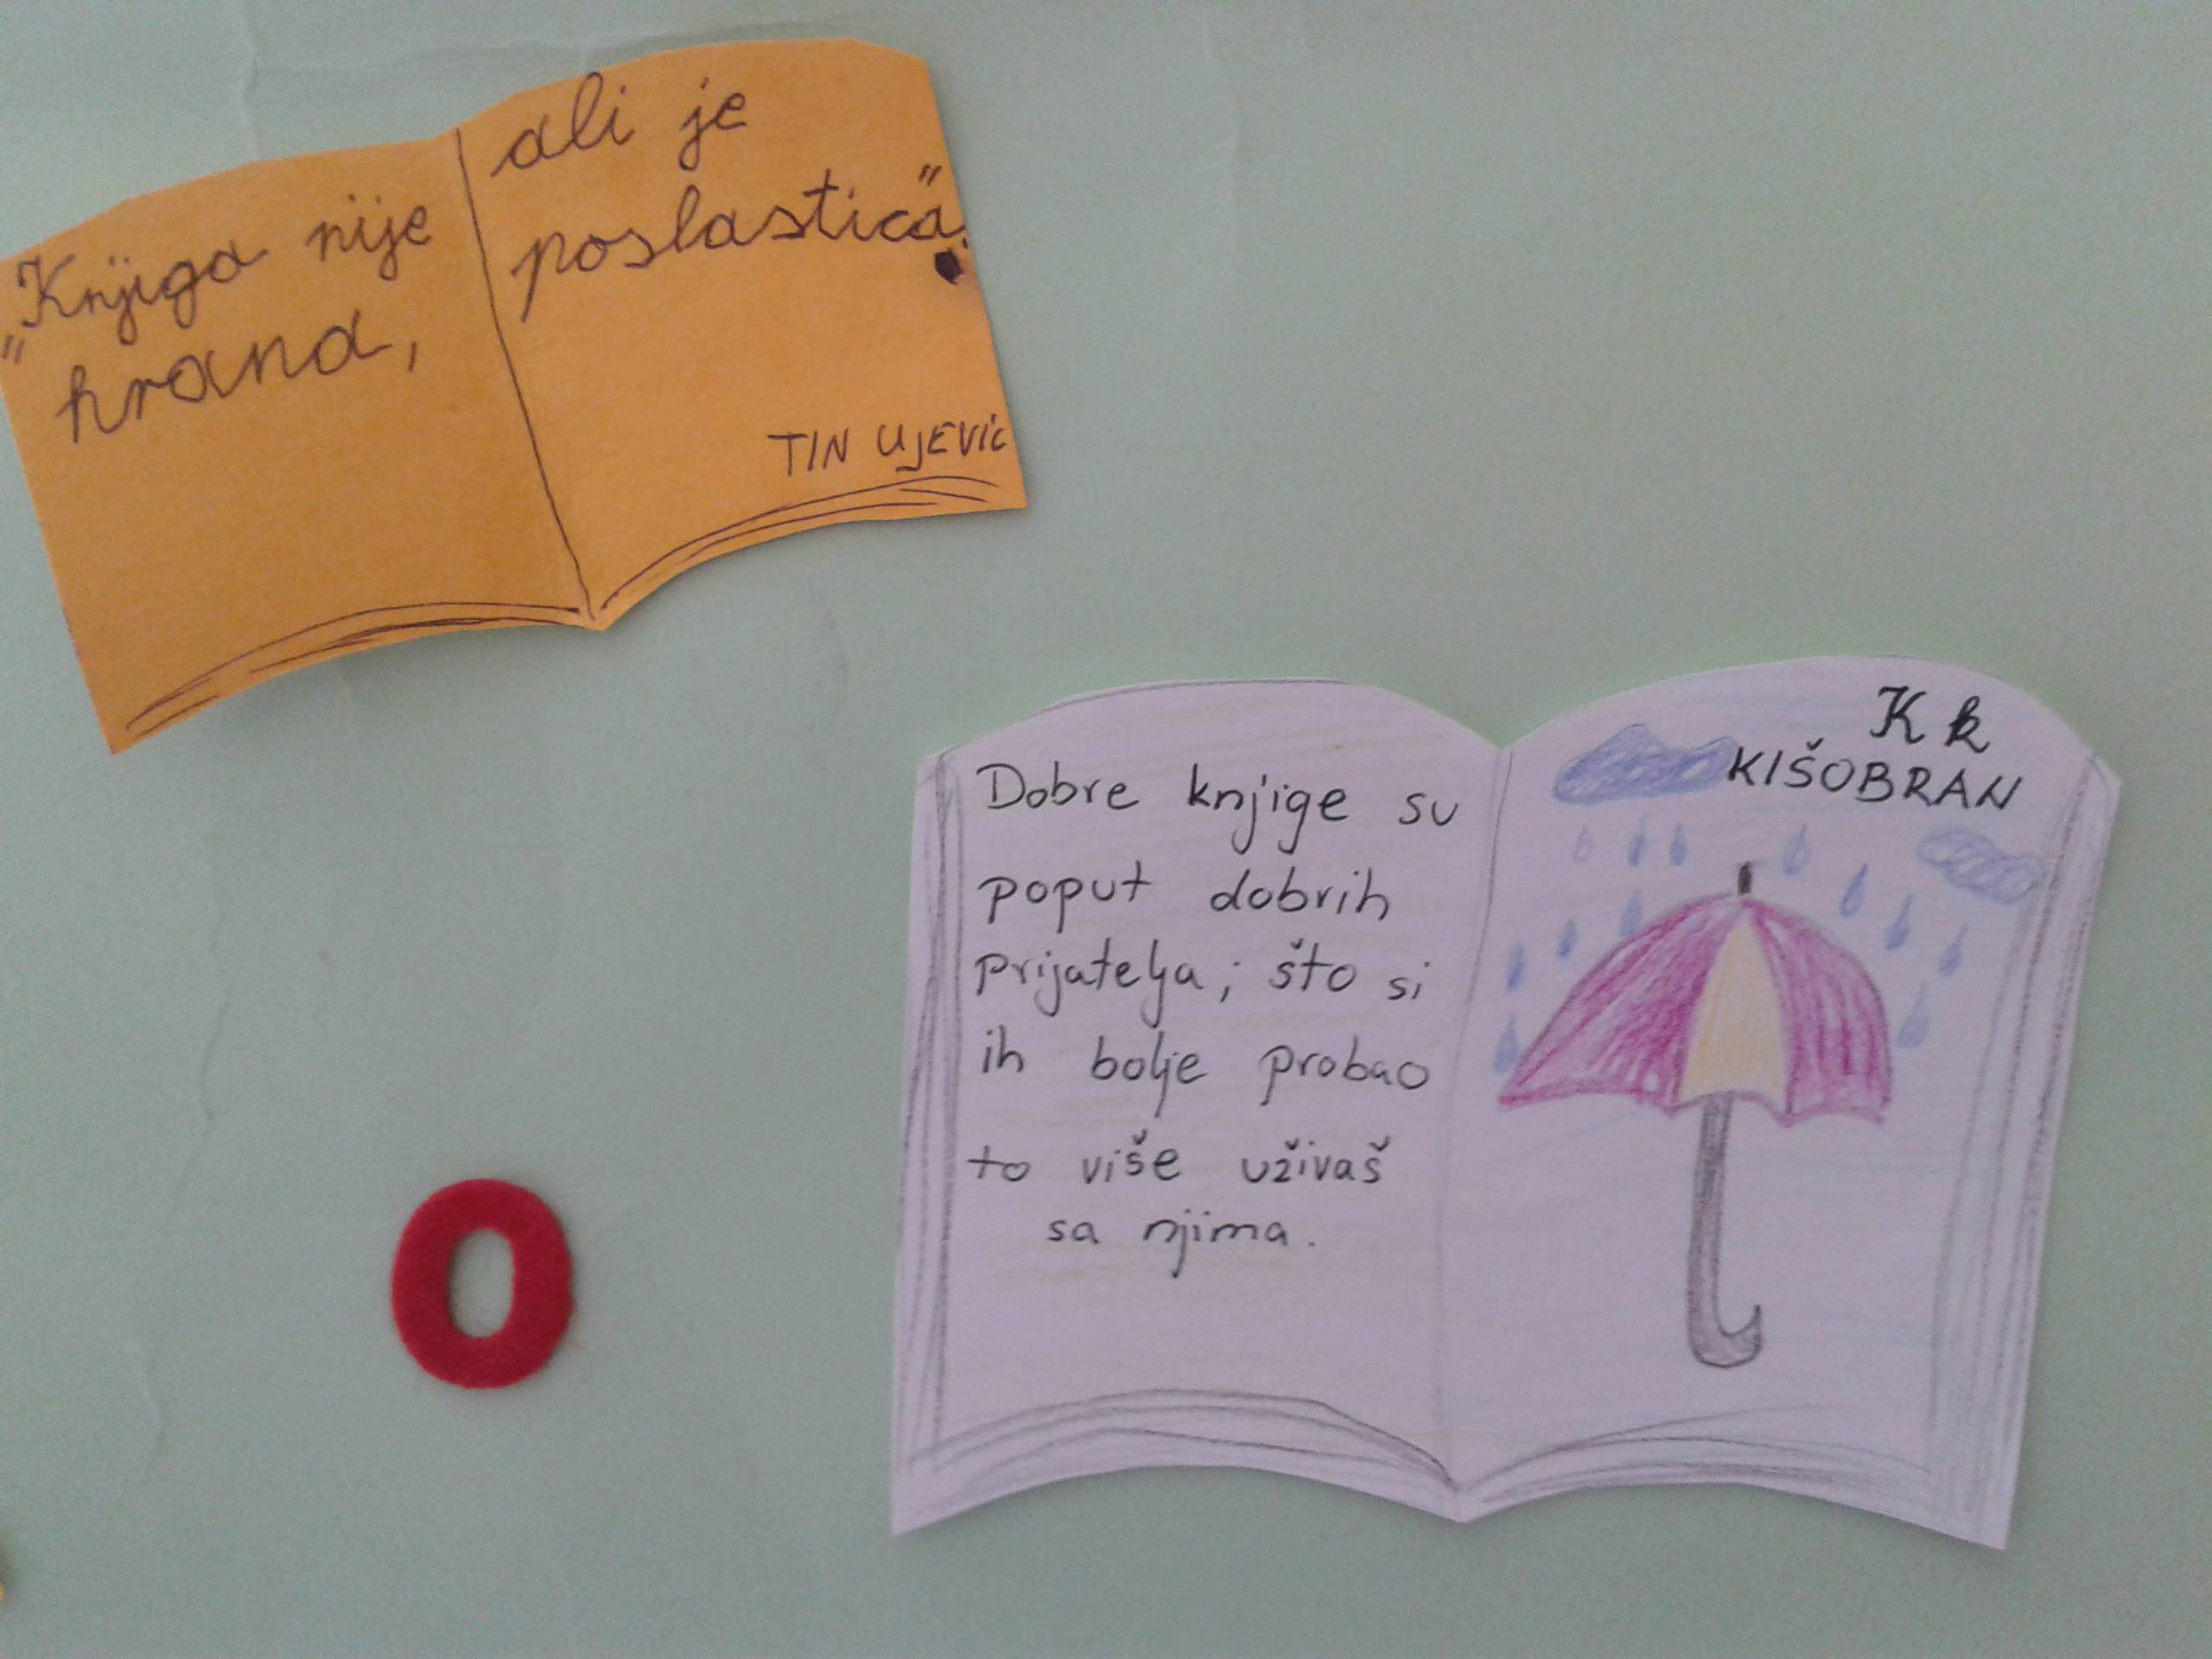 "Knjiga nije
hrana,
ali je
poslastica".
TIN UJEVIĆ
O
Dobre knjige su
poput dobrih
prijatelja; što si
ih bolje probao
to više uživaš
sa njima.
K k
KIŠOBRAN